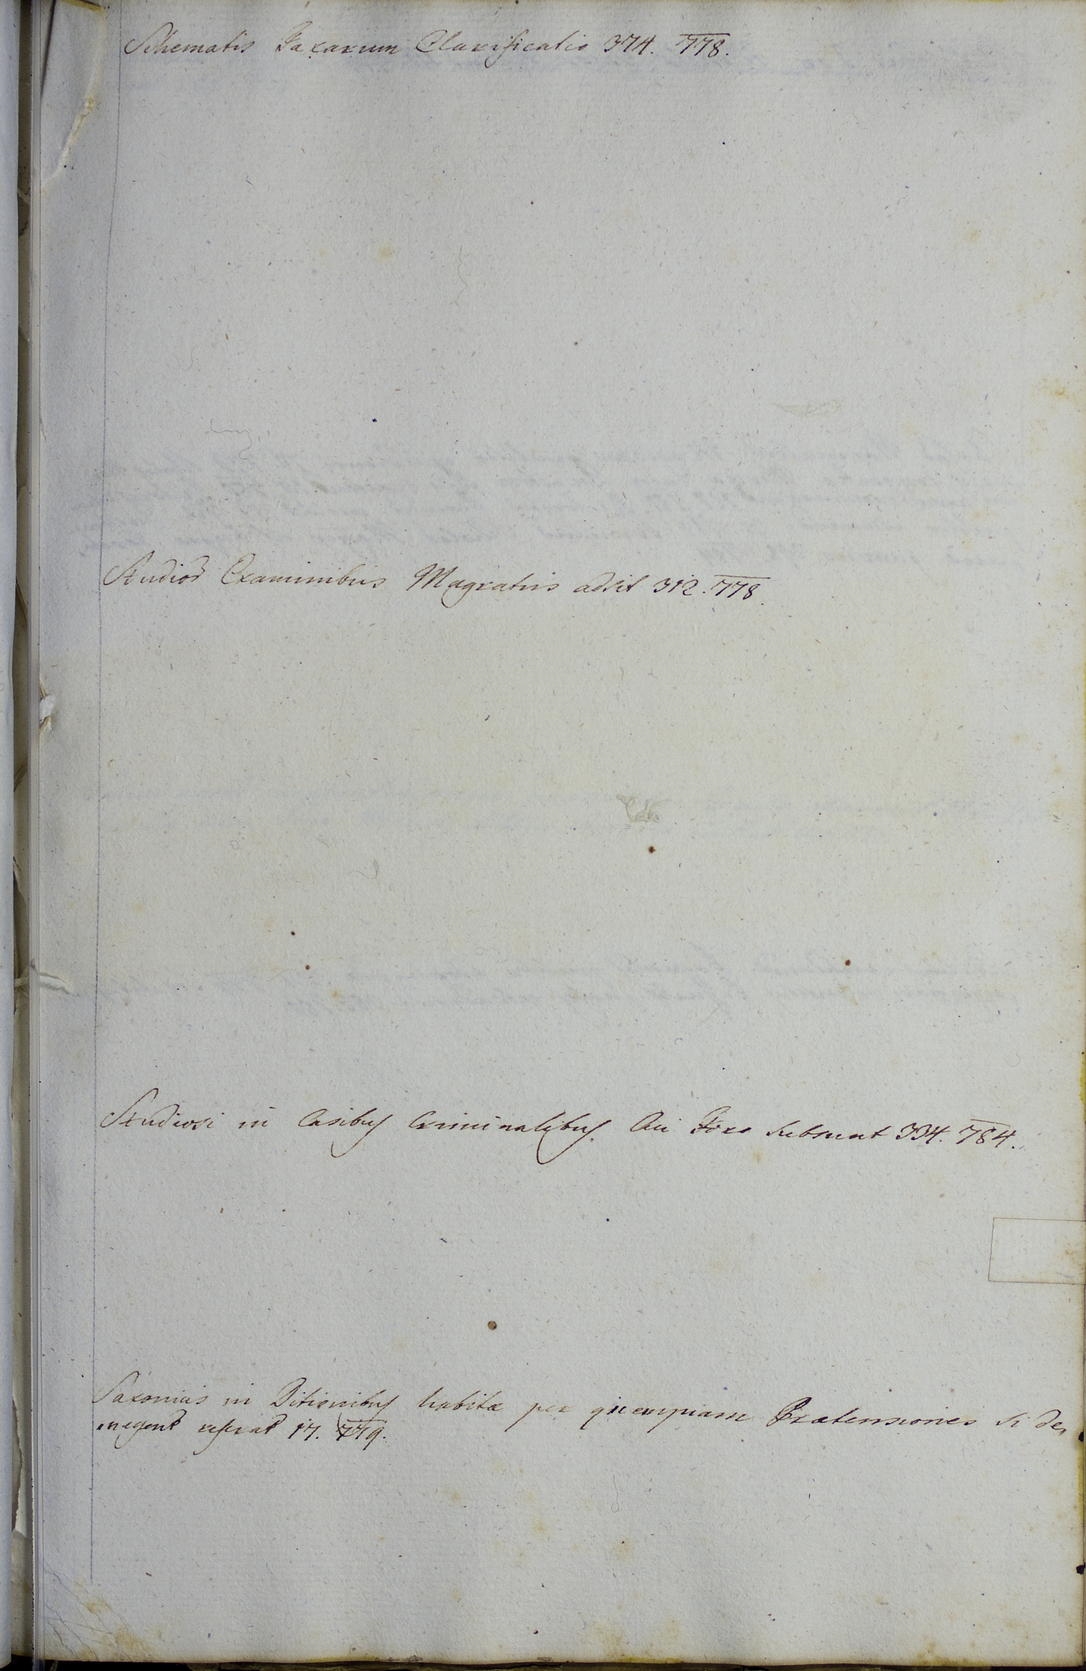 Schematis Taxarum Clarificatio 374. 778.
Studios Examinibus Magratus adsit 312. 778.
Studiosi in Casibus Criminalibus Cui Foro subsunt 334. 784.
Saxonicis in Ditionibus habitæ per quempiam Prætensiones si de,
negent referat 17. 779.